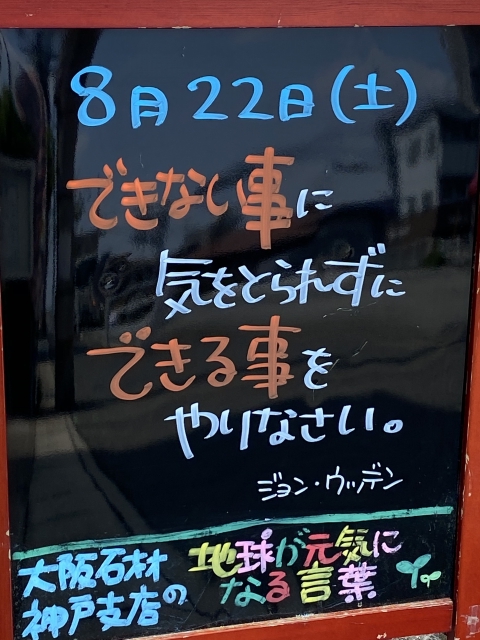 8月22日(土)
できない事に
気をとられずに
できる事を
やりなさい。
ジョン・ウッデン
大阪石材
神戸支店の
地球が元気に
なる言葉